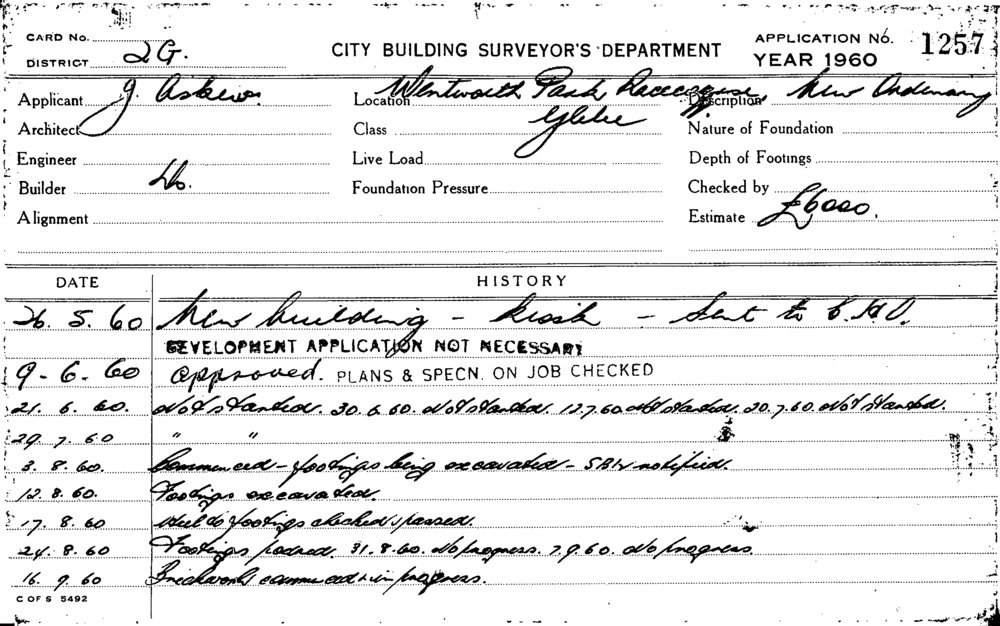 CARD No.
DISTRICT 2G.
CITY BUILDING SURVEYOR'S DEPARTMENT
APPLICATION No. 1257
YEAR 1960
Applicant J. Askew.
Location Wentworth Park Racecourse, Glebe
Description New Ordinary
Architect
Class
Nature of Foundation
Engineer
Live Load
Depth of Footings
Builder Do.
Foundation Pressure
Checked by
Alignment
Estimate £6000.
DATE HISTORY
26. 5. 60 New building - Kiosk - Sent to
DEVELOPMENT APPLICATION NOT NECESSARY
9. 6. 60 approved. PLANS & SPECN. ON JOB CHECKED
21. 6. 60. Not started. 30.6.60. Not started. 12.7.60. Not started. 20.7.60. Not started.
29. 7. 60 " "
3. 8. 60. Commenced - footings being excavated - notified.
12. 8. 60. Footings excavated.
17. 8. 60 Steel to footings checked & passed.
24. 8. 60 Footings poured. 31.8.60. No progress. 7.9.60. No progress.
16. 9. 60 Brickwork commenced & in progress.
C OF S 5492